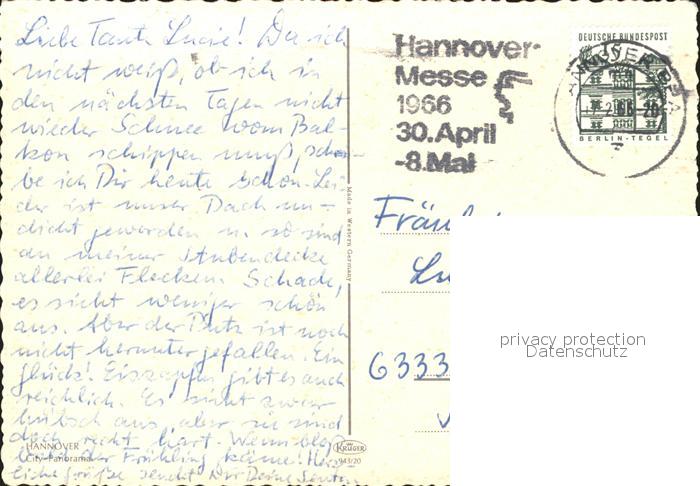 Liebe Tante Lucie! Da ich
nicht weiß, ob ich in
den nächsten Tagen nicht
wieder Schnee vom Bal-
kon schippen muß, schrei-
be ich Dir heute schon. Lei-
der ist unser Dach un-
dicht geworden u. so sind
an meiner Stubendecke
allerlei Flecken. Schade,
es sieht weniger schön
aus. Aber der Putz ist noch
nicht heruntergefallen. Ein
Glück! Eiszapfen gibt es auch
reichlich. Es sieht zwar
hübsch aus, aber sie sind
doch recht hart. Wenn
der Frühling käme! Herz-
liche Grüße sendet Dir Deine
HANNOVER
City-Panorama
Made in Western Germany
KRÜGER
943/20
Hannover-
Messe
1966
30.April
-8.Mai
DEUTSCHE BUNDESPOST
BERLIN-TEGEL
HANNOVER
Fräu
Lu
6333
privacy protection
Datenschutz